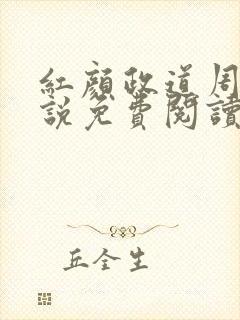 紅顏政道周
說免費閱讀
丘全生